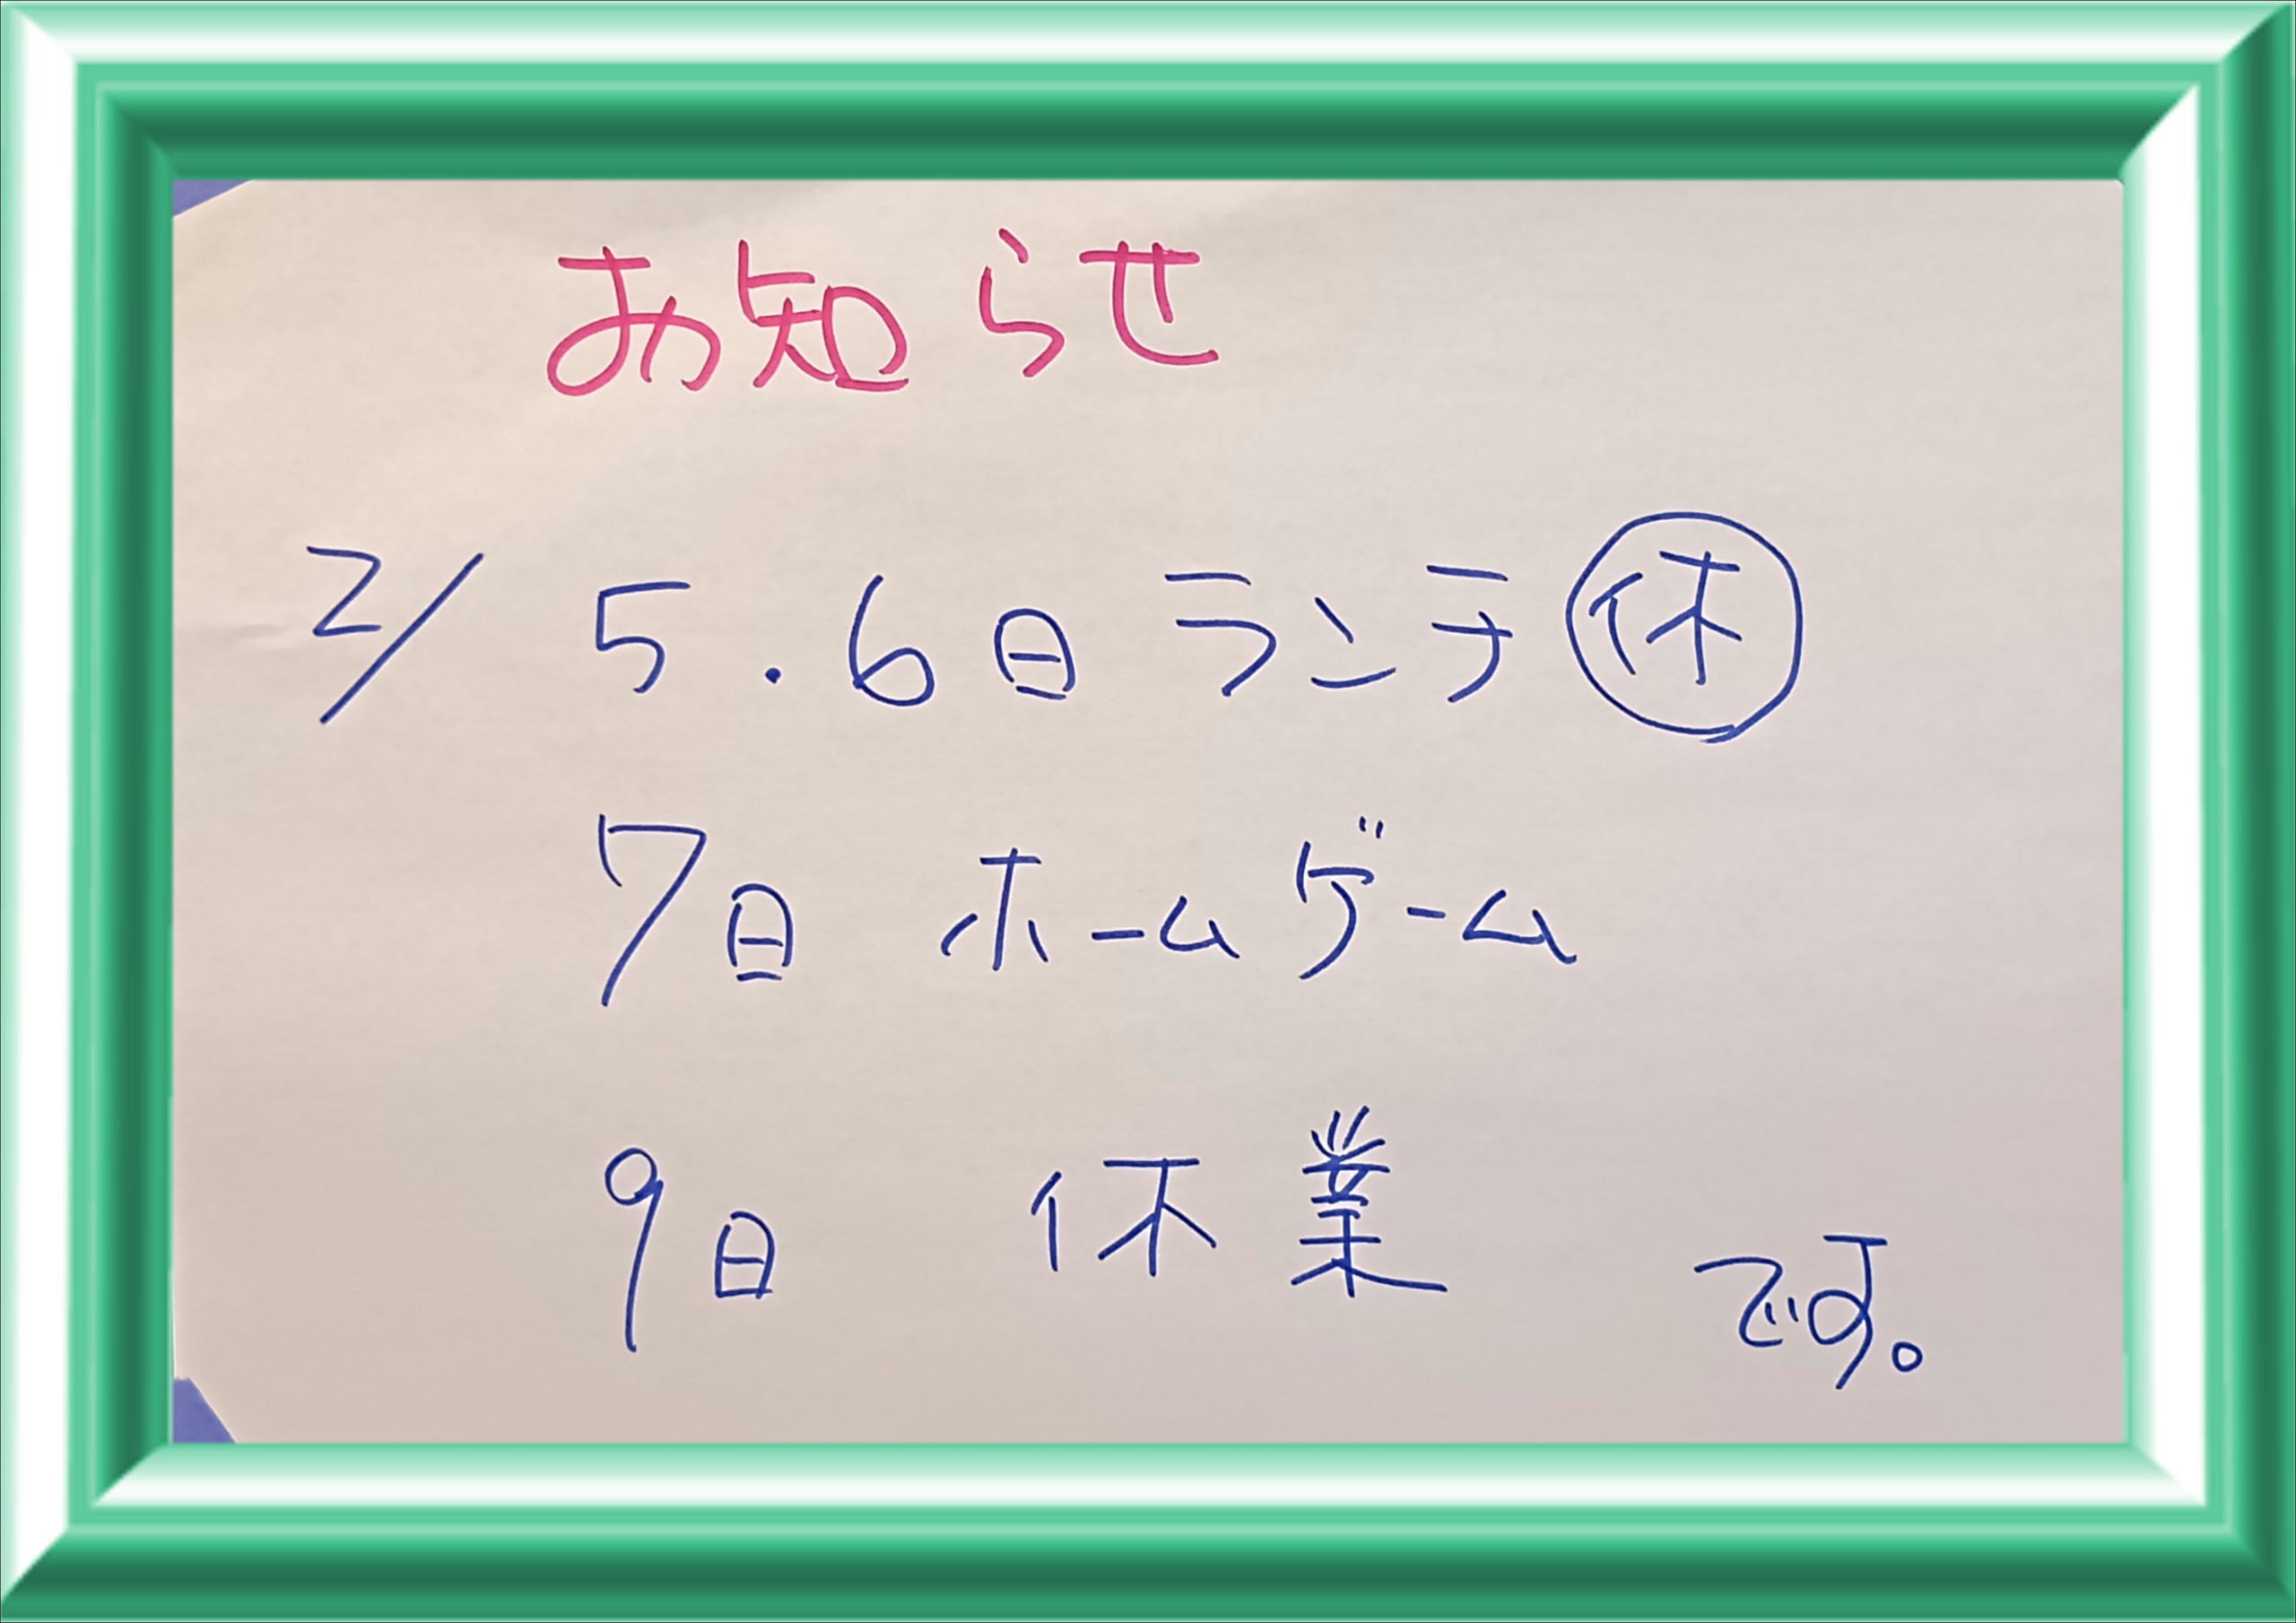 お知らせ
2/5.6日ランチ㊡
7日 ホームゲーム
9日 休業 です。